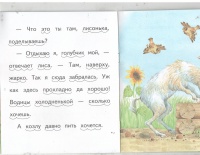 — Что это ты там, лисонька,
поделываешь?
— Отдыхаю я, голубчик мой, —
отвечает лиса. — Там, наверху,
жарко. Так я сюда забралась. Уж
как здесь прохладно да хорошо!
Водицы холодненькой — сколько
хочешь.
А козлу давно пить хочется.